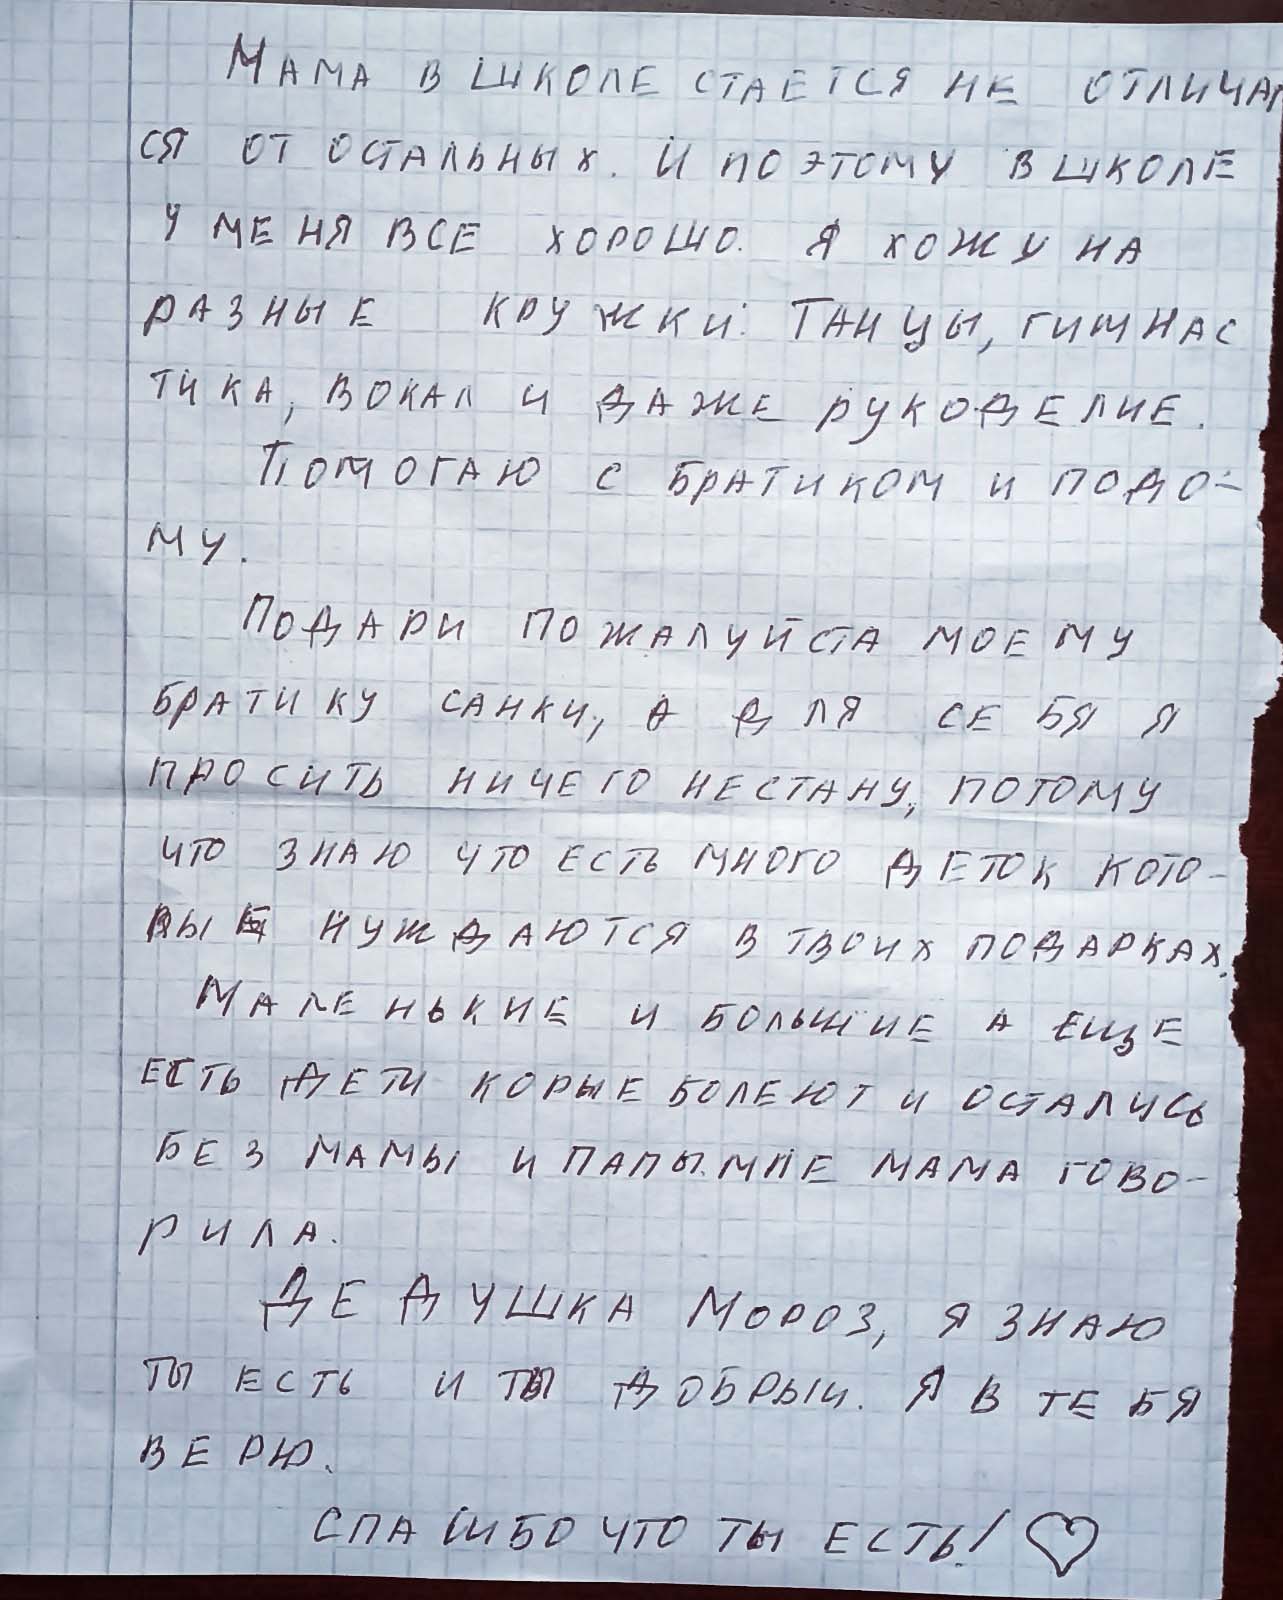 Мама в школе стается не отличат
ся от остальных. И поэтому в школе
у меня все хорошо. Я хожу на
разные кружки: Танцы, гимнас
тика, вокал и даже рукоделие.
Помогаю с братиком и подо-
му.
Подари пожалуйста моему
братику санки, а для себя я
просить ничего нестану, потому
что знаю что есть много деток кото-
рые нуждаются в твоих подарках.
Маленькие и большие а еще
есть дети корые болеют и остались
без мамы и папы. мне мама гово-
рила.
Дедушка Мороз, я знаю
ты есть и ты добрый. Я в тебя
верю.
Спасибо что ты есть! ♡